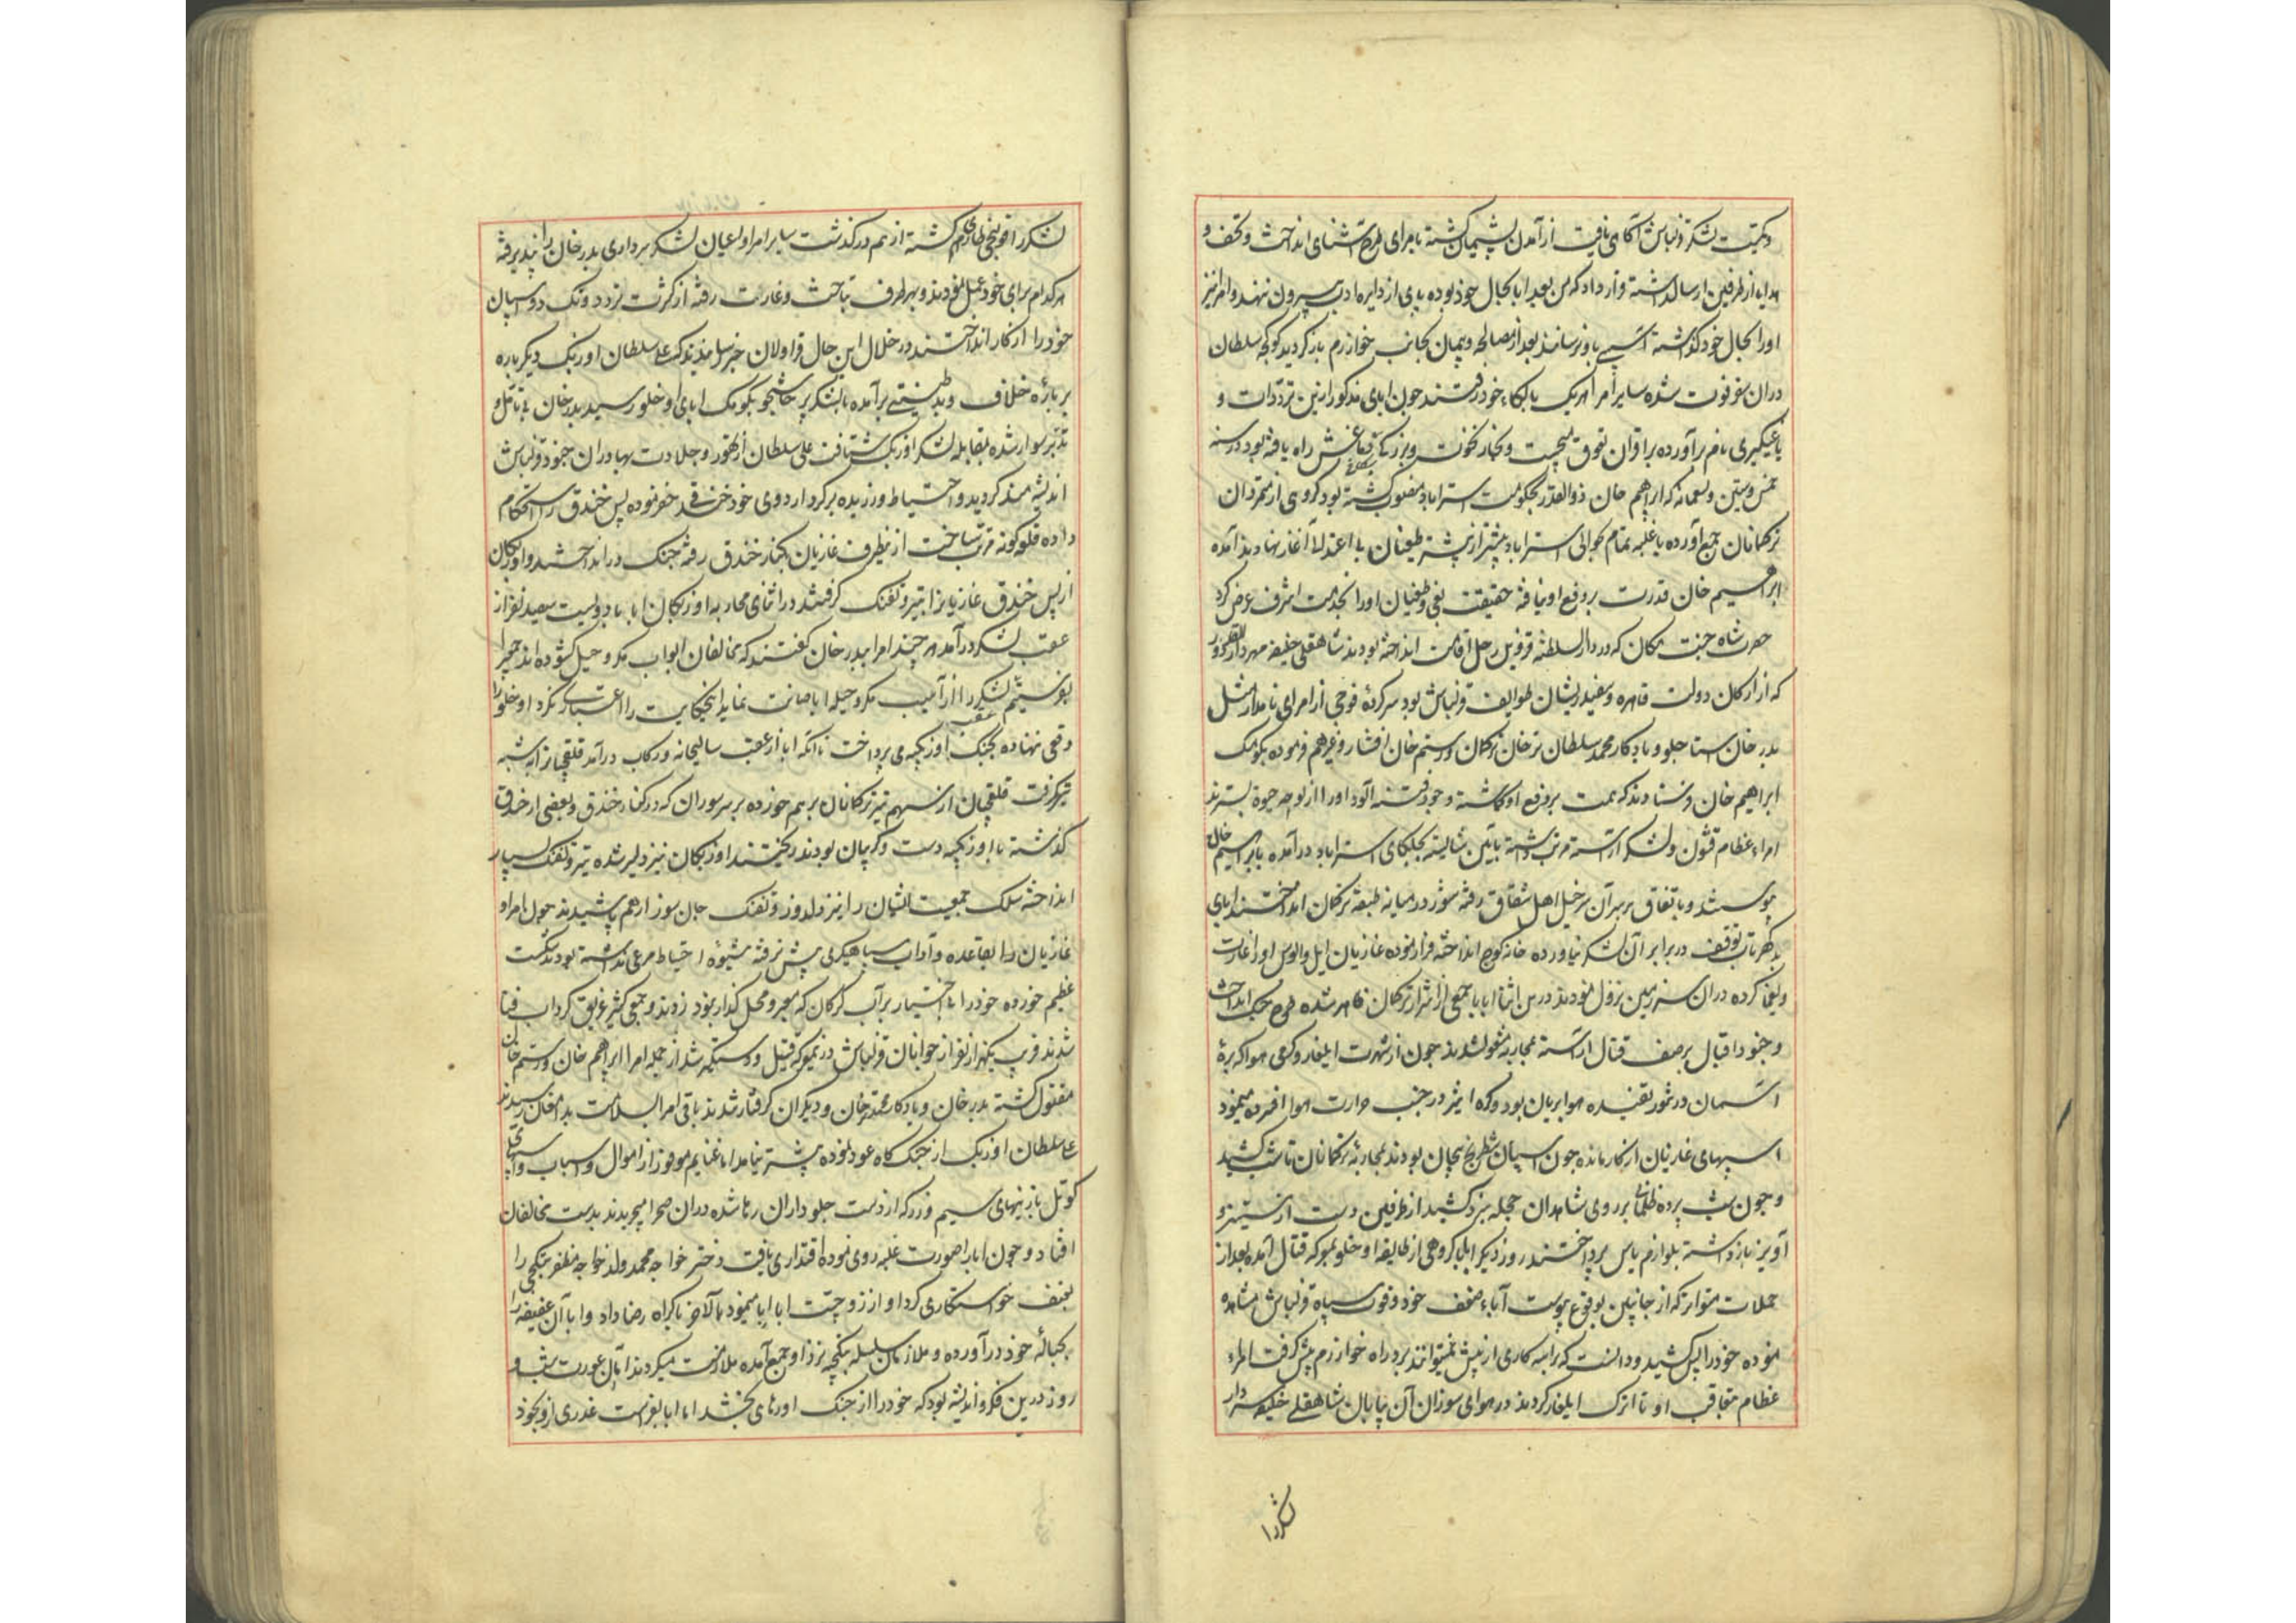 و کمیت لشکر قزلباش آگاهی یافت از آمدن پشیمان گشته با امرای طرح آشنائی انداخت و تحف و
هدایا از طرفین ارسال داشته قرار داد که من بعد ابا بحال خود بوده پای از دایره ادب بیرون ننهد و امرا نیز
او را بحال خود گذاشته آسیبی باو نرسانند بعد از مصالحه و پیمان بجانب خوارزم باز گردید کوکجه سلطان
در آن سفر فوت شده سایر امرا هر یک بالکاء خود رفتند چون ابای مذکور ازین ترددات و
یاغیگیری نام برآورده بر اقران تفوق میجست و بخار نخوت و بزرگی بدماغش راه یافته بود در سنه
خمس و ستین و تسعمائه که ابراهیم خان ذوالقدر بحکومت استراباد منصوب گشته بود گروهی از متمردان
ترکمانان جمع آورده با غلبه تمام بحوالی استراباد پیشتر از پیشتر طغیان بی اعتدالی آغاز نهادند آمده
ابراهیم خان قدرت بر دفع او نیافته حقیقت بغی و طغیان او را بخدمت اشرف عرض کرد
حضرت شاه جنت مکان که در دار السلطنه قزوین رحل اقامت انداخته بودند شاهقلی خلیفه مهردار ذوالقدر را
که از ارکان دولت قاهره و سفید ریشان طوایف قزلباش بود سرکرده فوجی از امرای نامدار مثل
بدر خان استاجلو و یادکار محمد سلطان ترخان ترکمان و رستم خان افشار و غیرهم فرموده بکومک
ابراهیم خان فرستادند که همت بر دفع او گماشته وجود فتنه آلود او را از لوحه حیوة بسترند
امراء عظام قشون و لشکر آراسته مرتب داشته بآئین شایسته بجلگای استراباد درآمده با ابراهیم خان
پیوستند و باتفاق بر سر آن سرخیل اهل شقاق رفته شور در میانه طبقه ترکمان انداختند ابای
بدگهر تاب توقف در برابر آن لشکر نیاورده خانه کوچ انداخته فرار نموده غازیان ایل و الوس او را غارت
و یغما کرده در آن سرزمین نزول نمودند در این اثنا ابا با جمعی از اشرار ترکمان ظاهر شده طرح جنگ انداخت
و جنود اقبال بر صف قتال آراسته بمحاربه مشغول شدند چون از شدت ایلغار و گرمی هوا که بره
آسمان در تنور تفتیده هوا بریان بود و کره اثیر در جنب حرارت هوا افسرده مینمود
اسبهای غازیان از کار مانده چون اسبان شطرنج بیجان بودند بمحاربه ترکمانان تا شب کشید
و چون شب پرده ظلمانی بر روی شاهدان حجله نبرد کشید از طرفین دست از ستیز و
آویز بازداشته بلوازم پاس پرداختند روز دیگر ابا با گروهی از طایفه اوخلو بمعرکه قتال آمده بعد از
حملات متواتر که از جانبین بوقوع پیوست آباء ضعف خود و قوت سپاه قزلباش مشاهده
نموده خود را پس کشید و دانست که براسه کاری از پیش نمیتواند برد راه خوارزم پیش گرفت امراء
عظام متعاقب او تا اترک ایلغار کردند در هوای سوزان آن بیابان شاهقلی خلیفه سردار
لشکر را
لشکر را قولنجی طاری گشته از هم درگذشت سایر امرا و اعیان لشکر سرداری بدر خان را نپذیرفته
هر کدام برای خود عمل نمودند و بهر طرف بتاخت و غارت رفته از کثرت تردد و تک دو اسبان
خود را از کار انداختند در خلال این حال قراولان خبر رسانیدند که علی سلطان اوزبک دیگر باره
بر باره خلاف و بد طینتی برآمده با لشکر پرخاشجو بکومک ابای اوخلو رسید بدر خان بی تامل و
تدبر سوار شده بمقابله لشکر اوزبک شتافت علی سلطان از تهور و جلادت بهادران جنود قزلباش
اندیشه مند گردید و احتیاط ورزیده بر گرد اردوی خود خندقی حفر نموده پس خندق را استحکام
داده قلعه گونه مرتب ساخت ازینطرف غازیان بکنار خندق رفته جنگ در انداختند و اوزبکان
از پس خندق غازیانرا بتیر و تفنگ گرفتند در اثنای محاربه اوزبکان ابا با دویست سیصد نفر از
عقب لشکر درآمد هر چند امرا ببدر خان گفتند که مخالفان ابواب مکر و حیل گشوده اند جمعی را
بفرستیم لشکر را از آسیب مکر و حیله ابا صیانت نماید اینحکایت را اعتباری نکرد و اوخلو را
وقعی ننهاده بجنگ اوزبکیه می پرداخت تا آنکه ابا از عقب سالیجانه و رکاب درآمد قلقچیانرا به شیبه
تیر گرفت قلقچیان از سهم تیر ترکمانان بر هم خورده بر سر سوران که در کنار خندق و بعضی از خندق
گذشته با اوزبکیه دست و گریبان بودند ریختند اوزبکان نیز دلیر شده تیر و تفنگ بسیار
انداخته سلک جمعیت ایشان را بتیر دلدوز و تفنگ جان سوز از هم پاشیدند چون امرا و
غازیان را بقاعده و آداب سپاهیگری پیش نرفته شیوه احتیاط مرعی نداشته بودند شکست
عظیم خورده خود را بی اختیار بر آب گرگان که معبر و محل گذار نبود زدند و جمعی کثیر غریق گرداب فنا
شدند قریب یکهزار نفر از جوانان قزلباش در معرکه قتیل و دستگیر شد از جمله امرا ابراهیم خان و رستم خان
مقتول گشته بدر خان و یادکار محمد ترخان و دیگران گرفتار شدند باقی امرا بسلامت بدامغان رسیدند
علی سلطان اوزبک از جنگ گاه عود نموده پیشتر نیامد اما غنایم موفور از اموال و اسباب و اسبهای
کوتل با زینهای سیم و زر که از دست جلوداران رها شده در آن صحرا میچریدند بدست مخالفان
افتاد و چون ابا را صورت غلبه روی نموده اقتداری یافت دختر خواجه محمد ولد خواجه مظفر بتکچی را
بعنف خواستگاری کرد او از زوجیت ابا ابا مینمود بالآخر باکراه رضا داد و ابا آن عفیفه را
بحباله خود درآورده و ملازمان سلسله بتکچیه نزد او جمع آمده ملازمت میکردند اما آن عورت شب و
روز درین فکر و اندیشه بود که خود را از جنگ او رهائی بخشد اما ابا بفراست غدری از وجود